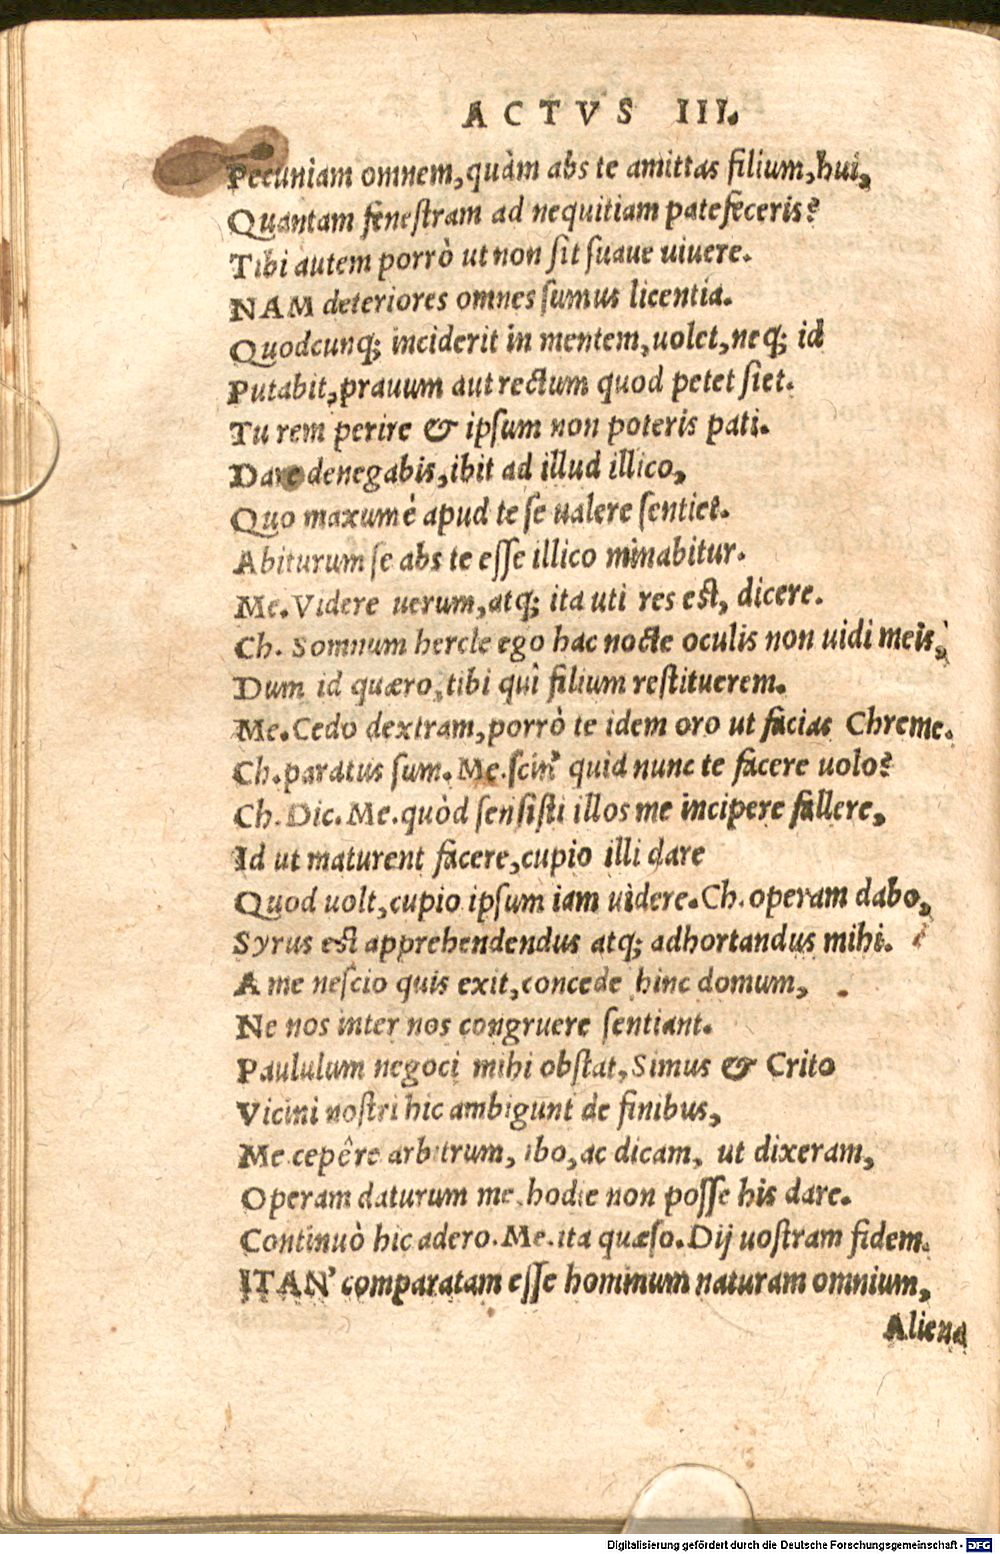 ACTVS III.
Pecuniam omnem, quàm abs te amittas filium, hui,
Quantam fenestram ad nequitiam patefeceris?
Tibi autem porrò ut non sit suaue uiuere.
NAM deteriores omnes sumus licentia.
Quodcunq; inciderit in mentem, uolet, neq; id
Putabit, prauum aut rectum quod petet siet.
Tu rem perire & ipsum non poteris pati.
Dare denegabis, ibit ad illud illico,
Quo maxumè apud te se ualere sentiet.
Abiturum se abs te esse illico minabitur.
Me. Videre uerum, atq; ita uti res est, dicere.
Ch. Somnum hercle ego hac nocte oculis non uidi meis,
Dum id quæro, tibi quì filium restituerem.
Me. Cedo dextram, porrò te idem oro ut facias Chreme.
Ch. paratus sum. Me. scin' quid nunc te facere uolo?
Ch. Dic. Me. quòd sensisti illos me incipere fallere,
Id ut maturent facere, cupio illi dare
Quod uolt, cupio ipsum iam uidere. Ch. operam dabo,
Syrus est apprehendendus atq; adhortandus mihi.
A me nescio quis exit, concede hinc domum,
Ne nos inter nos congruere sentiant.
Paululum negoci mihi obstat, Simus & Crito
Vicini nostri hic ambigunt de finibus,
Me cepêre arbitrum, ibo, ac dicam, ut dixeram,
Operam daturum me, hodie non posse his dare.
Continuò hic adero. Me. ita quæso. Dij uostram fidem.
ITAN' comparatam esse hominum naturam omnium,
Aliena
Digitalisierung gefördert durch die Deutsche Forschungsgemeinschaft - DFG